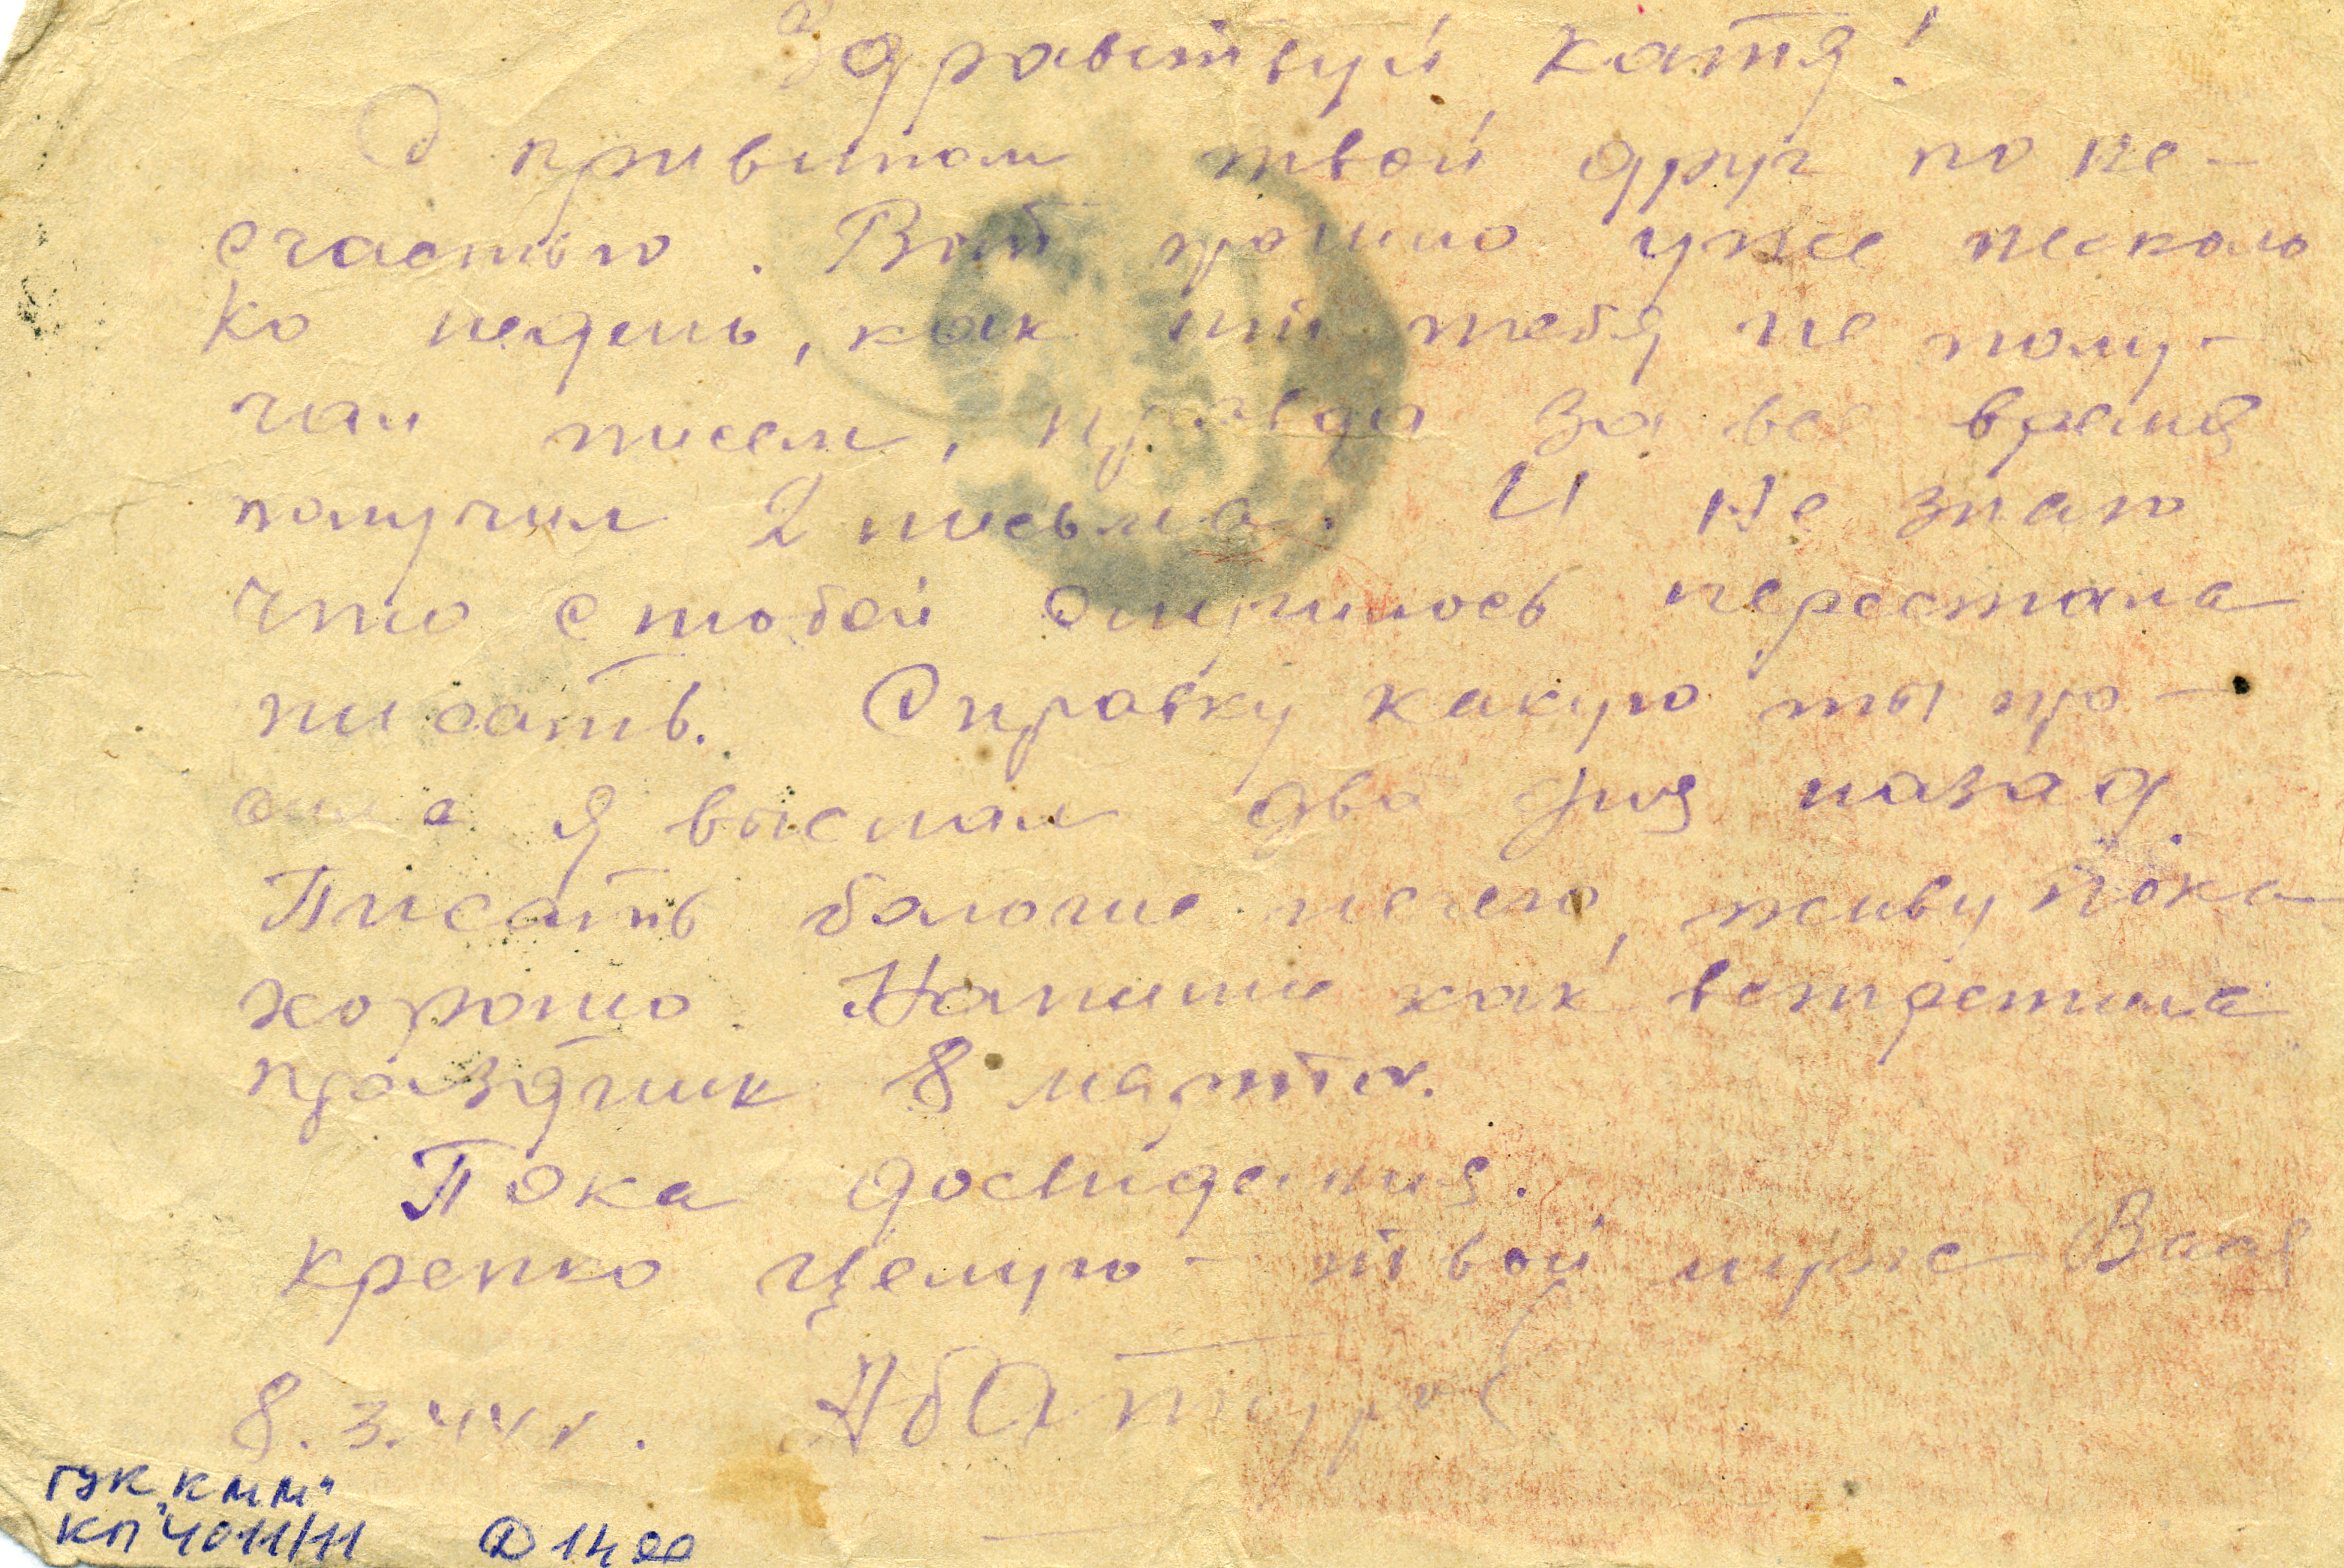 Здравствуй Катя!
С приветом твой друг по не-
счастью. Вот прошло уже несколь
ко недель, как от тебя не полу-
чал писем, правда за все время
получил 2 письма. И не знаю
что с тобой случилось перестала
писать. Справку какую ты про-
сила я выслал два дня назад.
Писать больше нечего, живу пока
хорошо. Напиши как встретила
праздник 8 марта.
Пока досвидания.
крепко целую - твой муж Ваня
8.3.44 г.
ГУК "КММ"
КП 4011/11